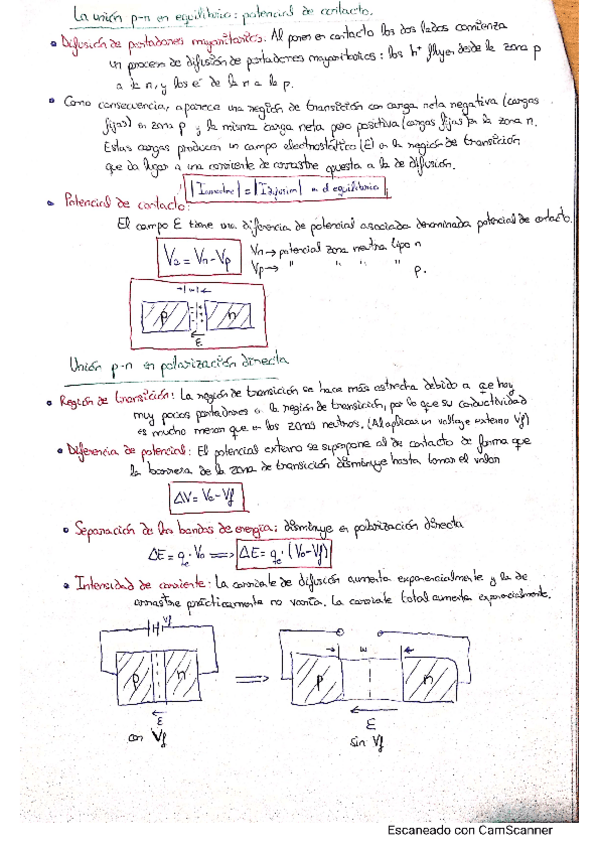 La unión p-n en equilibrio: potencial de contacto.
• Difusión de portadores mayoritarios. Al poner en contacto los dos lados comienza
un proceso de difusión de portadores mayoritarios: los h⁺ fluyen desde la zona p
a la n, y los e⁻ de la n a la p.
• Como consecuencia, aparece una región de transición con carga neta negativa (cargas
fijas) en zona p y la misma carga neta pero positiva (cargas fijas) en la zona n.
Estas cargas producen un campo electrostático (E) en la región de transición
que da lugar a una corriente de arrastre opuesta a la de difusión.
|Iarrastre| = |Idifusión| en el equilibrio
• Potencial de contacto:
El campo E tiene una diferencia de potencial asociada denominada potencial de contacto.
V₀ = Vn - Vp
Vn → potencial zona neutra tipo n
Vp → " " " " p.
→|w|←
p n
E
Unión p-n en polarización directa
• Región de transición: La región de transición se hace más estrecha debido a que hay
muy pocos portadores en la región de transición, por lo que su conductividad
es mucho menor que en las zonas neutras. (Al aplicar un voltaje externo Vf)
• Diferencia de potencial: El potencial externo se superpone al de contacto de forma que
la barrera de la zona de transición disminuye hasta tomar el valor
ΔV = V₀ - Vf
• Separación de las bandas de energía: disminuye en polarización directa
ΔE = qe · V₀ ⟹ ΔE = qe · (V₀ - Vf)
• Intensidad de corriente: La corriente de difusión aumenta exponencialmente y la de
arrastre prácticamente no varía. La corriente total aumenta exponencialmente.
Vf
p n ⟹ p w n
E E
con Vf sin Vf
Escaneado con CamScanner